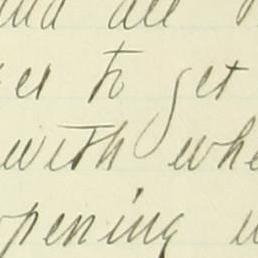 and all
to get
with whe
pening w